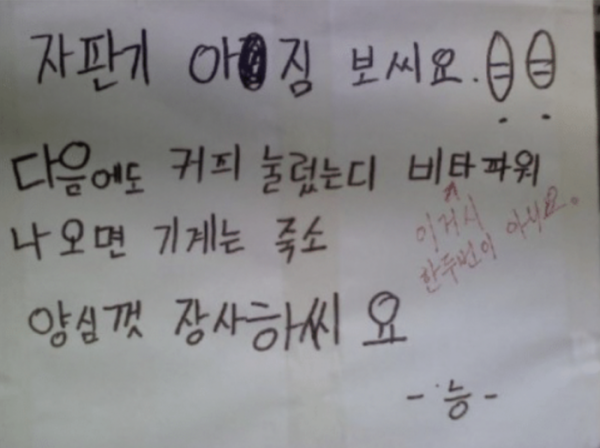 자판기 아짐 보씨요.
다음에도 커피 눌렀는디 비타파워
이거시
한두번이 아시요.
나오면 기계는 죽소
양심껏 장사하씨요
- 능 -